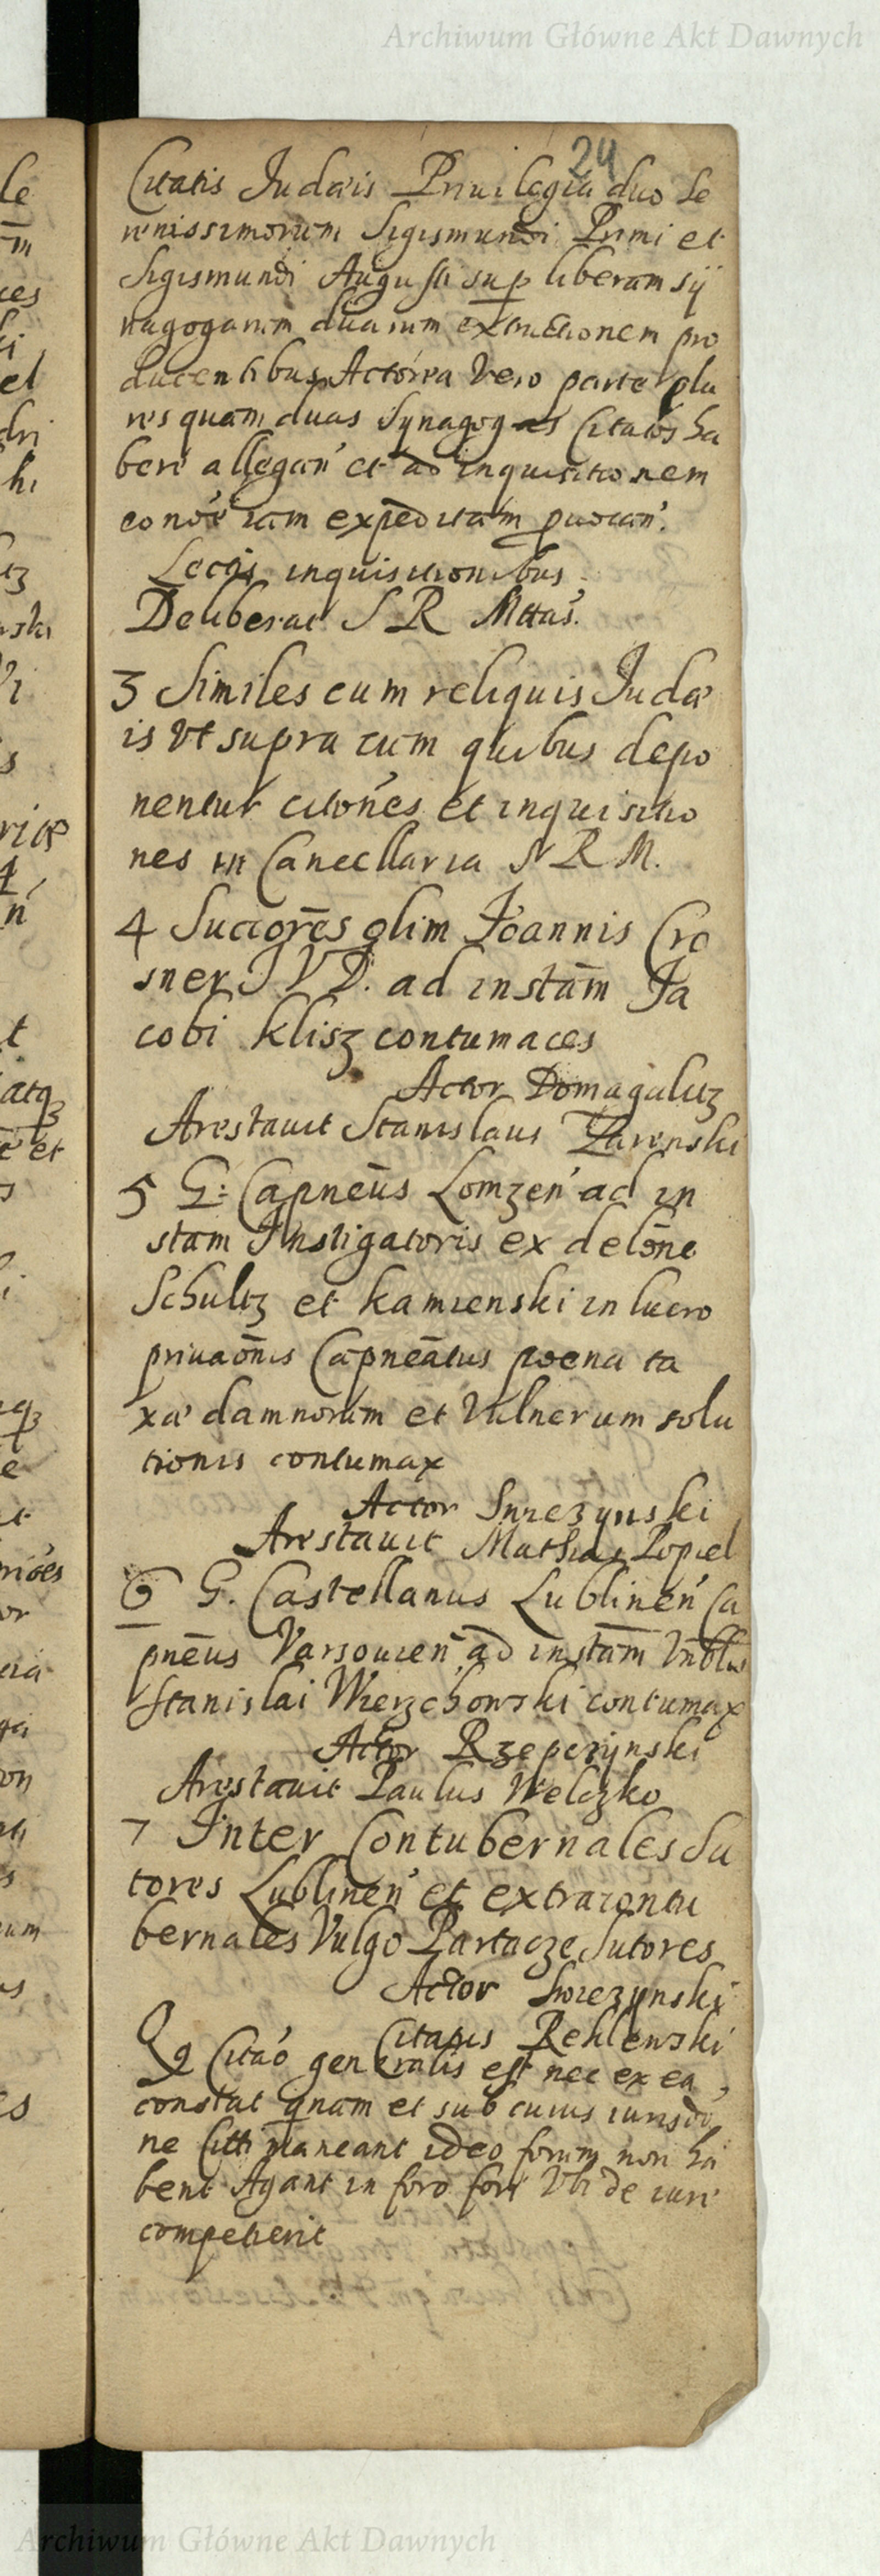 Archiwum Główne Akt Dawnych
24
Citatis Judæis Priuilegia duo Se
renissimorum Sigismundi Primi et
Sigismundi Augusti sup liberam sÿ
nagogarum duarum extructionem pro
ducentibus Actorea Vero parte plu
res quam duas Synagogas Citatos ha
bere allegan' et ad inquisitionem
eo no'e iam expeditam prouocan'.
Lectis inquisitionibus
Deliberat S R Mttas.
3 Similes cum reliquis Judæ
is Vt supra cum quibus depo
nentur citones et inquisitio
nes in Cancellaria S R M.
4 Succores olim Joannis Cro
sner J V D. ad instam Ja
cobi Klisz contumaces
Actor Domagalicz
Arestauit Stanislaus Zarenski
5 G: Capneus Lomzen' ad in
stam Instigatoris ex delone
Schultz et Kamienski in lucro
priuaonis Capneatus poena ta
xæ damnorum et Vulnerum solu
tionis contumax
Actor Swiezynski
Arestauit Mathias Popiel
6 G. Castellanus Lublinen' Ca
pneus Varsouien' ad instam
Stanislai Wierzchowski contumax
Actor Rzepczynski
Arestauit Paulus Welczko
7 Inter Contubernales Su
tores Lublinen' et extracontu
bernales Vulgo Partacze Sutores
Actor Swiezynski
Citatis Rehlewski
Q Citao generalis est nec ex ea
constat qnam et sub cuius iurisdo
ne Citti maneant ideo forum non ha
bent Agant in foro fori Vbi de iure
competierit
Archiwum Główne Akt Dawnych